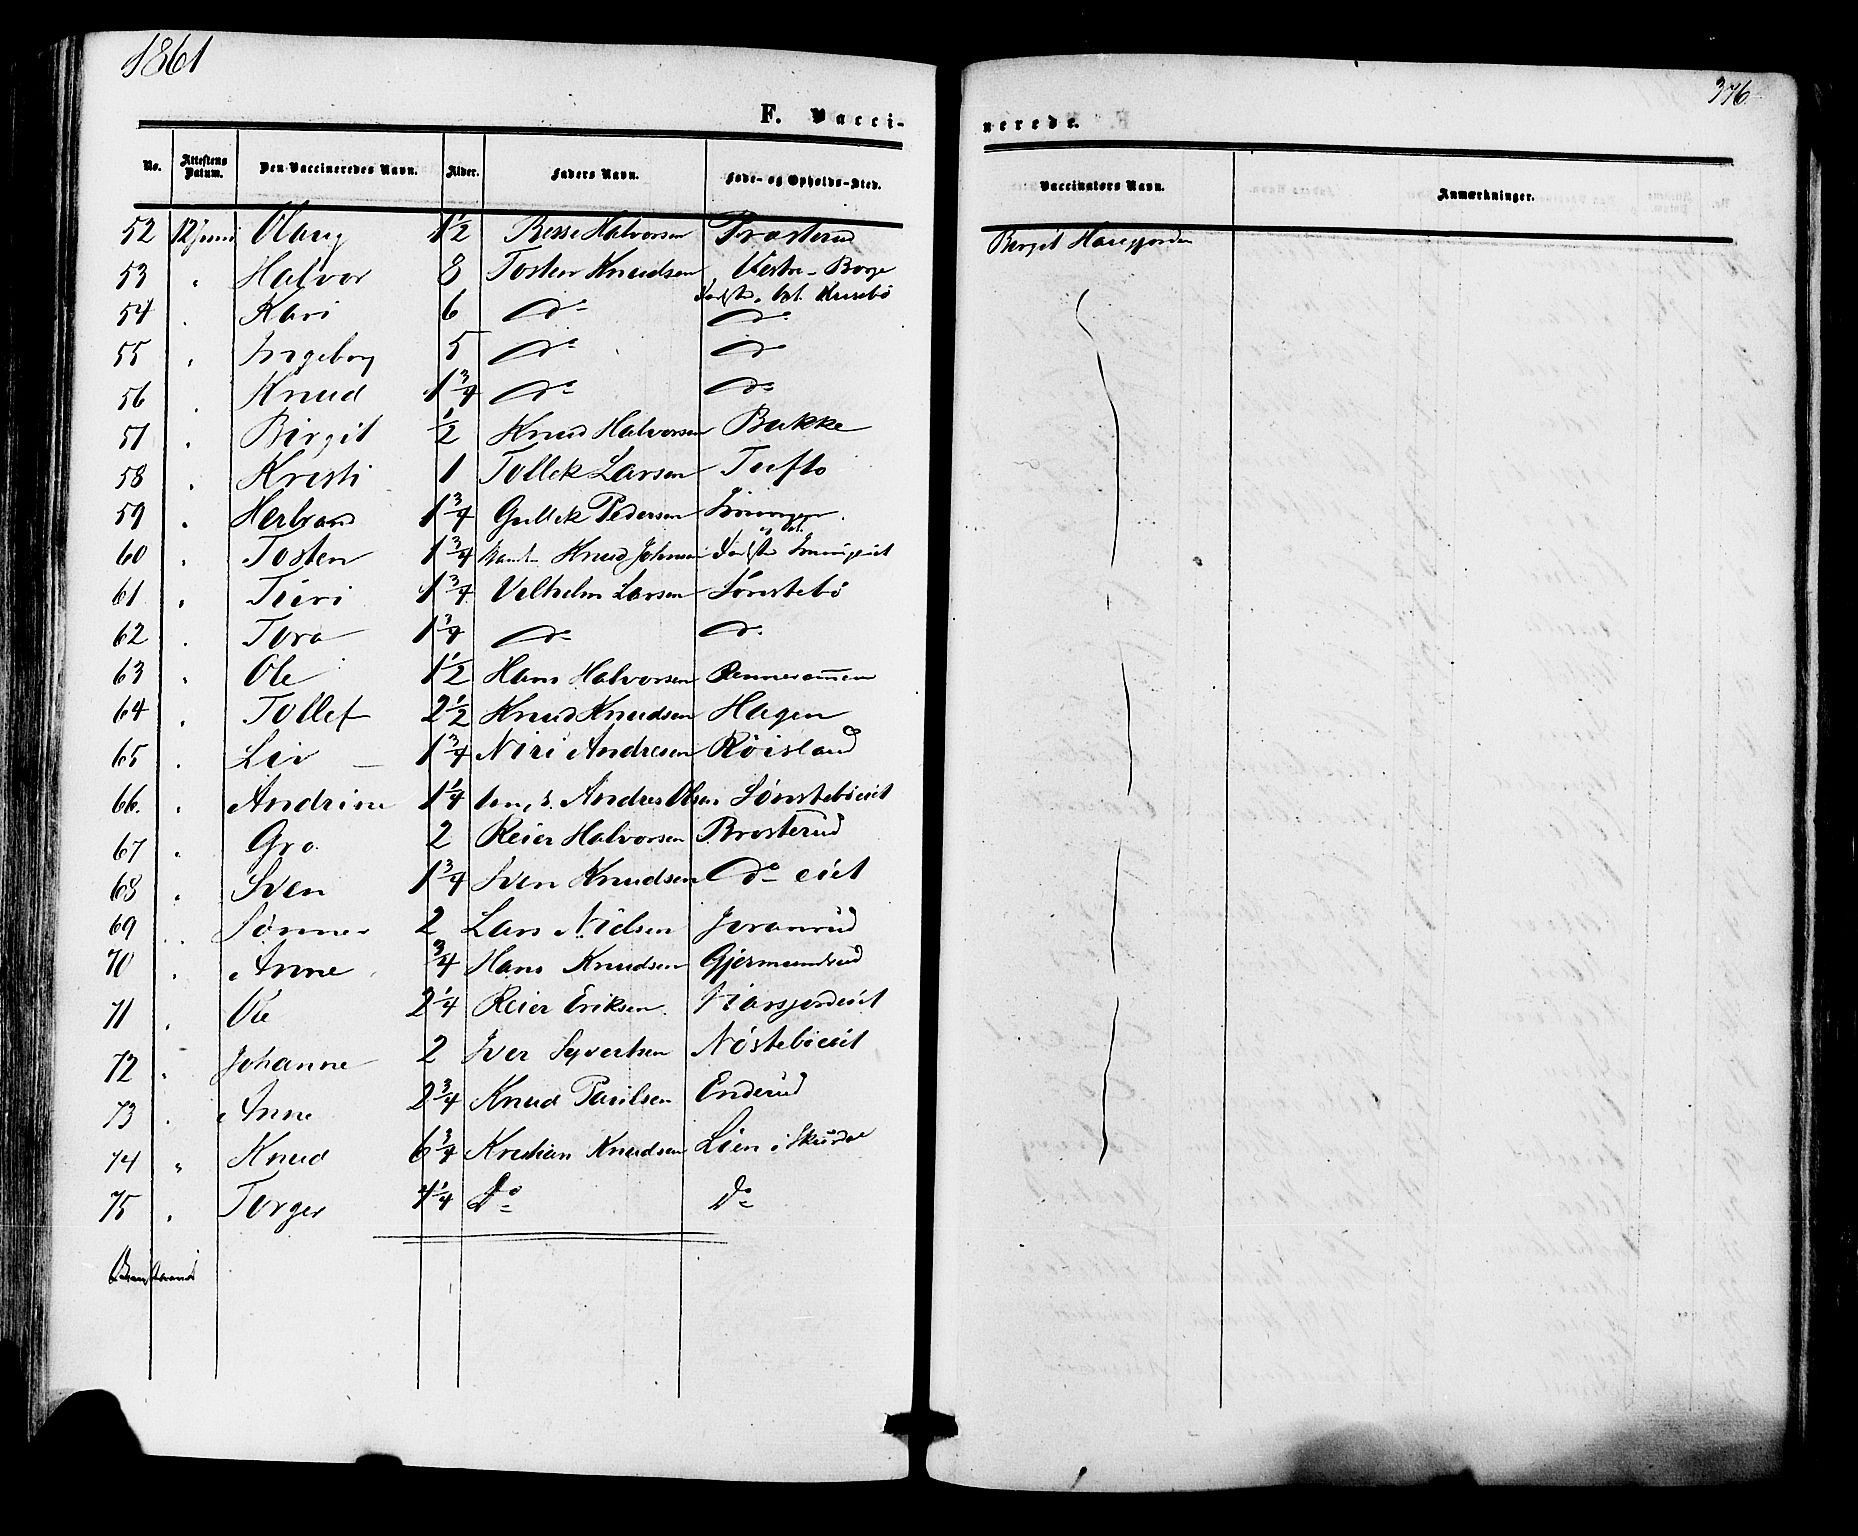 1861
376.
F. Vacci-
nerede.
No. Attestens Datum. Den Vaccineredes Navn. Alder. Faders Navn. Føde- og Opholds-Sted. Vaccinators Navn. Anmærkninger.
52 12 Juni Olaug 1 1/2 Besse Halvorsen Brosterud Birgit Haugjorden
53 " Halvor 8 Tosten Knudsen Vestre-Borge
54 " Kari 6 do do
55 " Ingeborg 5 do do
56 " Knud 1 3/4 do do
57 " Birgit 1/2 Knud Halvorsen Bakke
58 " Kristi 1 Tollek Larsen Tufto
59 " Herbrand 1 3/4 Gullek Pedersen
60 " Tosten 1 3/4 Knud Johnsen
61 " Turi 1 3/4 Velhelm Larsen Sønstebø
62 " Tora 1 3/4 do do
63 " Ole 1 1/2 Hans Halvorsen
64 " Tollef 2 1/2 Knud Knudsen Hagen
65 " Liv 1 3/4 Niri Andresen Røisland
66. " Andrine 1 1/4 Andres Olsen Sønstebøeiet
67 " Gro 2 Reier Halvorsen Brosterud
68 " Sven 1 3/4 Sven Knudsen do eiet
69 " Sønnev 2 Lars Nidsen Joranrud
70 " Anne 3/4 Hans Knudsen Gjermundrud
71 " Ole 2 1/4 Reier Eriksen
72 " Johanne 2 Iver Syvertsen Nøstebøeiet
73 " Anne 2 3/4 Knud Paulsen Enderud
74 " Knud 6 3/4 Kristian Knudsen Lien i Skurdal
75 " Torger 4 1/4 Do Do